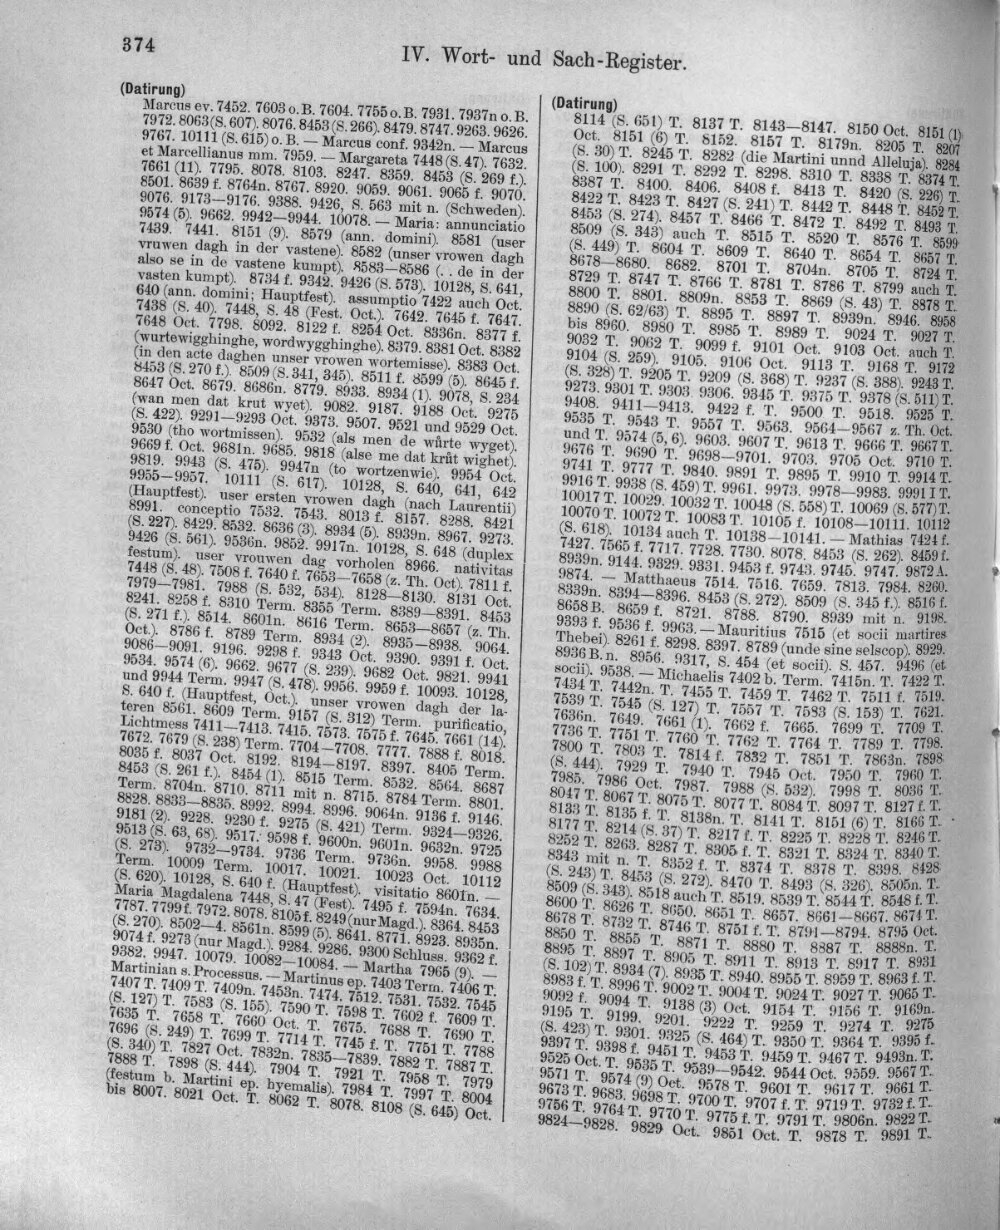 374
IV. Wort- und Sach-Register.
(Datirung)
Marcus ev. 7452. 7603 o. B. 7604. 7755 o. B. 7931. 7937n o. B.
7972. 8063 (S. 607). 8076. 8453 (S. 266). 8479. 8747. 9263. 9626.
9767. 10111 (S. 615) o. B. — Marcus conf. 9342n. — Marcus
et Marcellianus mm. 7959. — Margareta 7448 (S. 47). 7632.
7661 (11). 7795. 8078. 8103. 8247. 8359. 8453 (S. 269 f.).
8501. 8639 f. 8764n. 8767. 8920. 9059. 9061. 9065 f. 9070.
9076. 9173—9176. 9388. 9426, S. 563 mit n. (Schweden).
9574 (5). 9662. 9942—9944. 10078. — Maria: annunciatio
7439. 7441. 8151 (9). 8579 (ann. domini). 8581 (user
vruwen dagh in der vastene). 8582 (unser vrowen dagh
also se in de vastene kumpt). 8583—8586 (. . de in der
vasten kumpt). 8734 f. 9342. 9426 (S. 573). 10128, S. 641,
640 (ann. domini; Hauptfest). assumptio 7422 auch Oct.
7438 (S. 40). 7448, S. 48 (Fest. Oct.). 7642. 7645 f. 7647.
7648 Oct. 7798. 8092. 8122 f. 8254 Oct. 8336n. 8377 f.
(wurtewigghinghe, wordwygghinghe). 8379. 8381 Oct. 8382
(in den acte daghen unser vrowen wortemisse). 8383 Oct.
8453 (S. 270 f.). 8509 (S. 341, 345). 8511 f. 8599 (5). 8645 f.
8647 Oct. 8679. 8686n. 8779. 8933. 8934 (1). 9078, S. 234
(wan men dat krut wyet). 9082. 9187. 9188 Oct. 9275
(S. 422). 9291—9293 Oct. 9373. 9507. 9521 und 9529 Oct.
9530 (tho wortmissen). 9532 (als men de wůrte wyget).
9669 f. Oct. 9681n. 9685. 9818 (alse me dat krůt wighet).
9819. 9943 (S. 475). 9947n (to wortzenwie). 9954 Oct.
9955—9957. 10111 (S. 617). 10128, S. 640, 641, 642
(Hauptfest). user ersten vrowen dagh (nach Laurentii)
8991. conceptio 7532. 7543. 8013 f. 8157. 8288. 8421
(S. 227). 8429. 8532. 8636 (3). 8934 (5). 8939n. 8967. 9273.
9426 (S. 561). 9536n. 9852. 9917n. 10128, S. 648 (duplex
festum). user vrouwen dag vorholen 8966. nativitas
7448 (S. 48). 7508 f. 7640 f. 7653—7658 (z. Th. Oct). 7811 f.
7979—7981. 7988 (S. 532, 534). 8128—8130. 8131 Oct.
8241. 8258 f. 8310 Term. 8355 Term. 8389—8391. 8453
(S. 271 f.). 8514. 8601n. 8616 Term. 8653—8657 (z. Th.
Oct.). 8786 f. 8789 Term. 8934 (2). 8935—8938. 9064.
9086—9091. 9196. 9298 f. 9343 Oct. 9390. 9391 f. Oct.
9534. 9574 (6). 9662. 9677 (S. 239). 9682 Oct. 9821. 9941
und 9944 Term. 9947 (S. 478). 9956. 9959 f. 10093. 10128,
S. 640 f. (Hauptfest, Oct.). unser vrowen dagh der la-
teren 8561. 8609 Term. 9157 (S. 312) Term. purificatio,
Lichtmess 7411—7413. 7415. 7573. 7575 f. 7645. 7661 (14).
7672. 7679 (S. 238) Term. 7704—7708. 7777. 7888 f. 8018.
8035 f. 8037 Oct. 8192. 8194—8197. 8397. 8405 Term.
8453 (S. 261 f.). 8454 (1). 8515 Term. 8532. 8564. 8687
Term. 8704n. 8710. 8711 mit n. 8715. 8784 Term. 8801.
8828. 8833—8835. 8992. 8994. 8996. 9064n. 9136 f. 9146.
9181 (2). 9228. 9230 f. 9275 (S. 421) Term. 9324—9326.
9513 (S. 63, 68). 9517. 9598 f. 9600n. 9601n. 9632n. 9725
(S. 273). 9732—9734. 9736 Term. 9736n. 9958. 9988
Term. 10009 Term. 10017. 10021. 10023 Oct. 10112
(S. 620). 10128, S. 640 f. (Hauptfest). visitatio 8601n. —
Maria Magdalena 7448, S. 47 (Fest). 7495 f. 7594n. 7634.
7787. 7799 f. 7972. 8078. 8105 f. 8249 (nur Magd.). 8364. 8453
(S. 270). 8502—4. 8561n. 8599 (5). 8641. 8771. 8923. 8935n.
9074 f. 9273 (nur Magd.). 9284. 9286. 9300 Schluss. 9362 f.
9382. 9947. 10079. 10082—10084. — Martha 7965 (9). —
Martinian s. Processus. — Martinus ep. 7403 Term. 7406 T.
7407 T. 7409 T. 7409n. 7453n. 7474. 7512. 7531. 7532. 7545
(S. 127) T. 7583 (S. 155). 7590 T. 7598 T. 7602 f. 7609 T.
7635 T. 7658 T. 7660 Oct. T. 7675. 7688 T. 7690 T.
7696 (S. 249) T. 7699 T. 7714 T. 7745 f. T. 7751 T. 7788
(S. 340) T. 7827 Oct. 7832n. 7835—7839. 7882 T. 7887 T.
7888 T. 7898 (S. 444). 7904 T. 7921 T. 7958 T. 7979
(festum b. Martini ep. hyemalis). 7984 T. 7997 T. 8004
bis 8007. 8021 Oct. T. 8062 T. 8078. 8108 (S. 645) Oct.
(Datirung)
8114 (S. 651) T. 8137 T. 8143—8147. 8150 Oct. 8151 (1)
Oct. 8151 (6) T. 8152. 8157 T. 8179n. 8205 T. 8207
(S. 30) T. 8245 T. 8282 (die Martini unnd Alleluja). 8284
(S. 100). 8291 T. 8292 T. 8298. 8310 T. 8338 T. 8374 T.
8387 T. 8400. 8406. 8408 f. 8413 T. 8420 (S. 226) T.
8422 T. 8423 T. 8427 (S. 241) T. 8442 T. 8448 T. 8452 T.
8453 (S. 274). 8457 T. 8466 T. 8472 T. 8492 T. 8493 T.
8509 (S. 343) auch T. 8515 T. 8520 T. 8576 T. 8599
(S. 449) T. 8604 T. 8609 T. 8640 T. 8654 T. 8657 T.
8678—8680. 8682. 8701 T. 8704n. 8705 T. 8724 T.
8729 T. 8747 T. 8766 T. 8781 T. 8786 T. 8799 auch T.
8800 T. 8801. 8809n. 8853 T. 8869 (S. 43) T. 8878 T.
8890 (S. 62/63) T. 8895 T. 8897 T. 8939n. 8946. 8958
bis 8960. 8980 T. 8985 T. 8989 T. 9024 T. 9027 T.
9032 T. 9062 T. 9099 f. 9101 Oct. 9103 Oct. auch T.
9104 (S. 259). 9105. 9106 Oct. 9113 T. 9168 T. 9172
(S. 328) T. 9205 T. 9209 (S. 368) T. 9237 (S. 388). 9243 T.
9273. 9301 T. 9303. 9306. 9345 T. 9375 T. 9378 (S. 511) T.
9408. 9411—9413. 9422 f. T. 9500 T. 9518. 9525 T.
9535 T. 9543 T. 9557 T. 9563. 9564—9567 z. Th. Oct.
und T. 9574 (5, 6). 9603. 9607 T. 9613 T. 9666 T. 9667 T.
9676 T. 9690 T. 9698—9701. 9703. 9705 Oct. 9710 T.
9741 T. 9777 T. 9840. 9891 T. 9895 T. 9910 T. 9914 T.
9916 T. 9938 (S. 459) T. 9961. 9973. 9978—9983. 9991 I T.
10017 T. 10029. 10032 T. 10048 (S. 558) T. 10069 (S. 577) T.
10070 T. 10072 T. 10083 T. 10105 f. 10108—10111. 10112
(S. 618). 10134 auch T. 10138—10141. — Mathias 7424 f.
7427. 7565 f. 7717. 7728. 7730. 8078. 8453 (S. 262). 8459 f.
8939n. 9144. 9329. 9331. 9453 f. 9743. 9745. 9747. 9872 A.
9874. — Matthaeus 7514. 7516. 7659. 7813. 7984. 8260.
8339n. 8394—8396. 8453 (S. 272). 8509 (S. 345 f.). 8516 f.
8658 B. 8659 f. 8721. 8788. 8790. 8939 mit n. 9198.
9393 f. 9536 f. 9963. — Mauritius 7515 (et socii martires
Thebei). 8261 f. 8298. 8397. 8789 (unde sine selscop). 8929.
8936 B. n. 8956. 9317, S. 454 (et socii). S. 457. 9496 (et
socii). 9538. — Michaelis 7402 b. Term. 7415n. T. 7422 T.
7434 T. 7442n. T. 7455 T. 7459 T. 7462 T. 7511 f. 7519.
7539 T. 7545 (S. 127) T. 7557 T. 7583 (S. 153) T. 7621.
7636n. 7649. 7661 (1). 7662 f. 7665. 7699 T. 7709 T.
7736 T. 7751 T. 7760 T. 7762 T. 7764 T. 7789 T. 7798.
7800 T. 7803 T. 7814 f. 7832 T. 7851 T. 7863n. 7898
(S. 444). 7929 T. 7940 T. 7945 Oct. 7950 T. 7960 T.
7985. 7986 Oct. 7987. 7988 (S. 532). 7998 T. 8036 T.
8047 T. 8067 T. 8075 T. 8077 T. 8084 T. 8097 T. 8127 f. T.
8133 T. 8135 f. T. 8138n. T. 8141 T. 8151 (6) T. 8166 T.
8177 T. 8214 (S. 37) T. 8217 f. T. 8225 T. 8228 T. 8246 T.
8252 T. 8263. 8287 T. 8305 f. T. 8321 T. 8324 T. 8340 T.
8343 mit n. T. 8352 f. T. 8374 T. 8378 T. 8398. 8428
(S. 243) T. 8453 (S. 272). 8470 T. 8493 (S. 326). 8505n. T.
8509 (S. 343). 8518 auch T. 8519. 8539 T. 8544 T. 8548 f. T.
8600 T. 8626 T. 8650. 8651 T. 8657. 8661—8667. 8674 T.
8678 T. 8732 T. 8746 T. 8751 f. T. 8791—8794. 8795 Oct.
8850 T. 8855 T. 8871 T. 8880 T. 8887 T. 8888n. T.
8895 T. 8897 T. 8905 T. 8911 T. 8913 T. 8917 T. 8931
(S. 102) T. 8934 (7). 8935 T. 8940. 8955 T. 8959 T. 8963 f. T.
8983 f. T. 8996 T. 9002 T. 9004 T. 9024 T. 9027 T. 9065 T.
9092 f. 9094 T. 9138 (3) Oct. 9154 T. 9156 T. 9169n.
9195 T. 9199. 9201. 9222 T. 9259 T. 9274 T. 9275
(S. 423) T. 9301. 9325 (S. 464) T. 9350 T. 9364 T. 9395 f.
9397 T. 9398 f. 9451 T. 9453 T. 9459 T. 9467 T. 9493n. T.
9525 Oct. T. 9535 T. 9539—9542. 9544 Oct. 9559. 9567 T.
9571 T. 9574 (9) Oct. 9578 T. 9601 T. 9617 T. 9661 T.
9673 T. 9683. 9698 T. 9700 T. 9707 f. T. 9719 T. 9732 f. T.
9756 T. 9764 T. 9770 T. 9775 f. T. 9791 T. 9806n. 9822 T.
9824—9828. 9829 Oct. 9851 Oct. T. 9878 T. 9891 T.